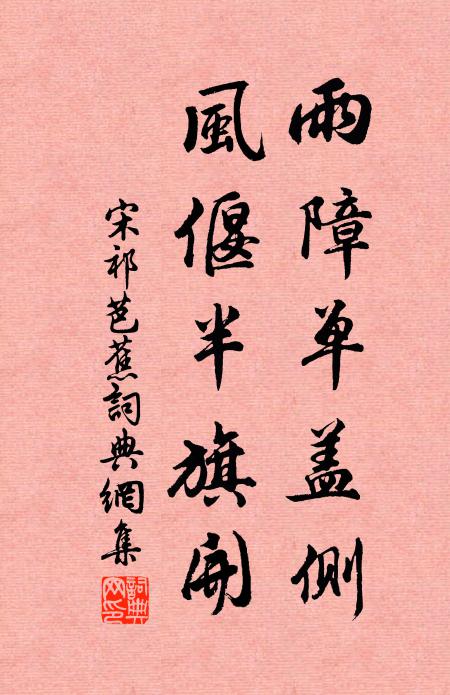 雨障单盖側
風偃半旗開
宋祁芭蕉詞典網集
詞典網印